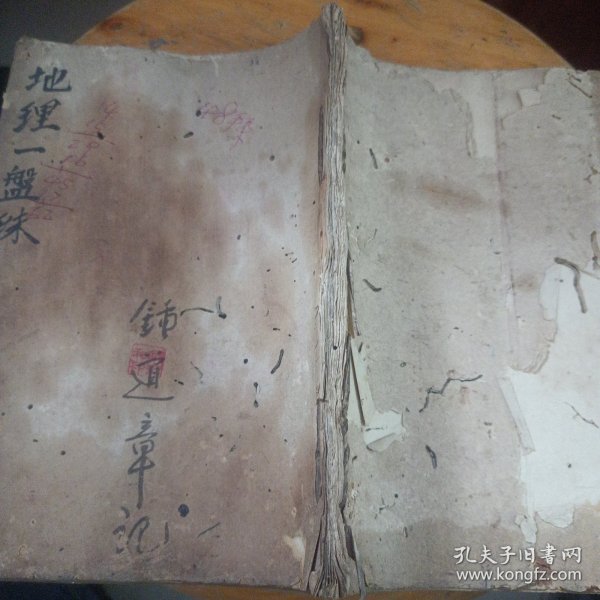 地理一盤珠
鍾道章記
孔夫子旧書网
www.kongfz.com